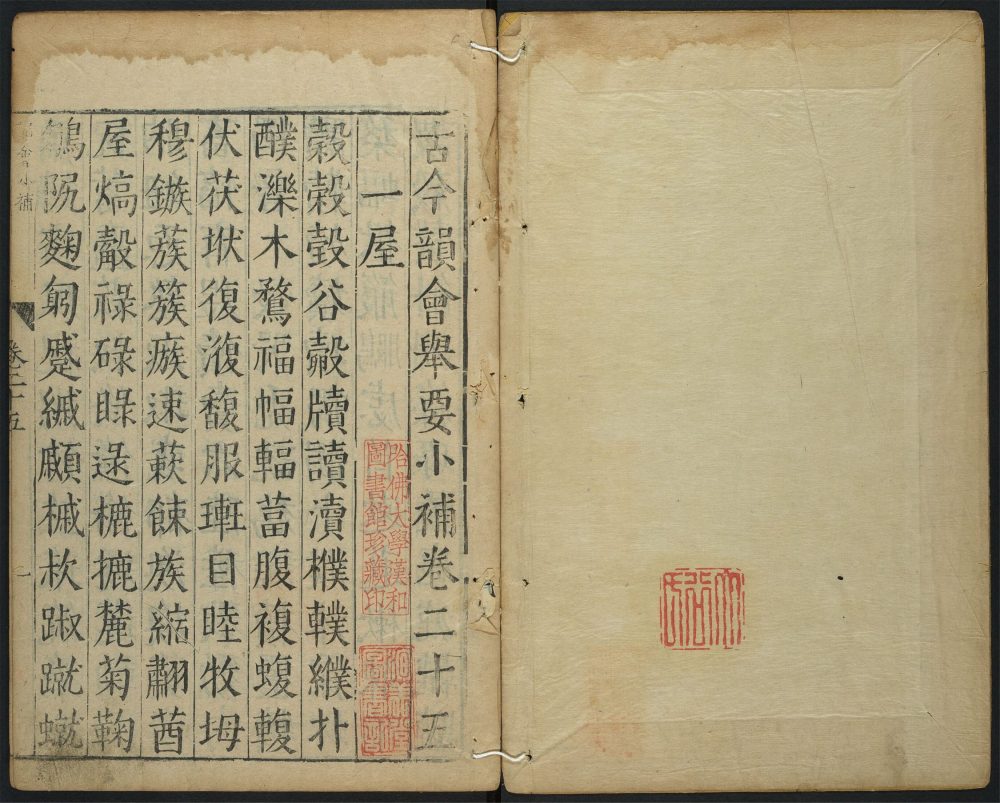 古今韻會舉要小補卷二十五
一屋
穀榖轂谷瀫牘讀瀆樸轐纀扑
醭濼木鶩福幅輻葍腹複蝮輹
伏茯垘復澓馥服㻎目睦牧坶
穆鏃蔟簇瘯速蔌餗族縮翻茜
屋熇觳祿碌睩逯樚摝麓菊鞠
鵴阮麴匑蹙縬顣槭敊踧蹴蹵
哈佛大學漢和
圖書館珍藏印
韻會小補
卷二十五
一